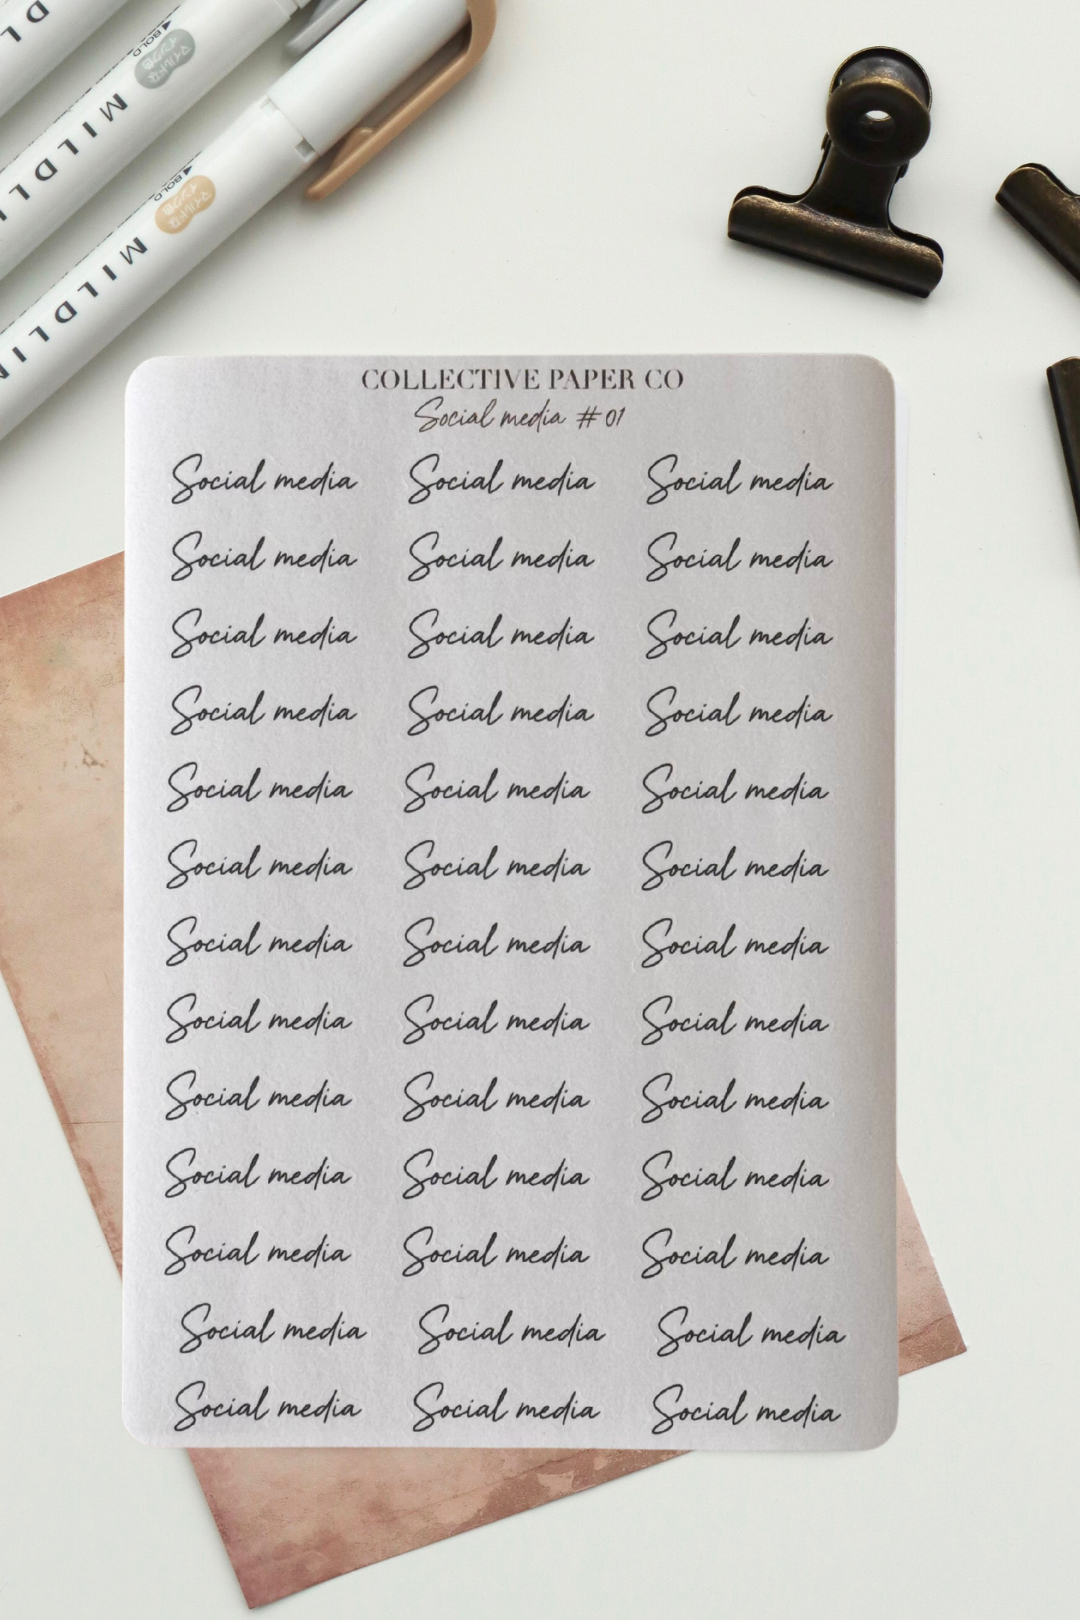 BOLD
マイルドな
インク色
MILDLI
BOLD
マイルドな
インク色
MILDLIN
COLLECTIVE PAPER CO
Social media #01
Social media Social media Social media
Social media Social media Social media
Social media Social media Social media
Social media Social media Social media
Social media Social media Social media
Social media Social media Social media
Social media Social media Social media
Social media Social media Social media
Social media Social media Social media
Social media Social media Social media
Social media Social media Social media
Social media Social media Social media
Social media Social media Social media